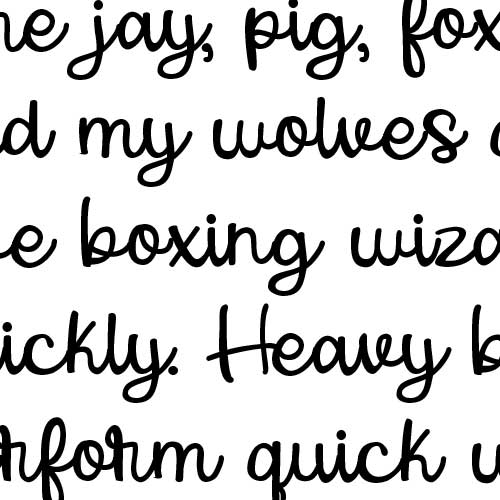 he jay, pig, fox
d my wolves
e boxing wiza
ickly. Heavy b
rform quick w